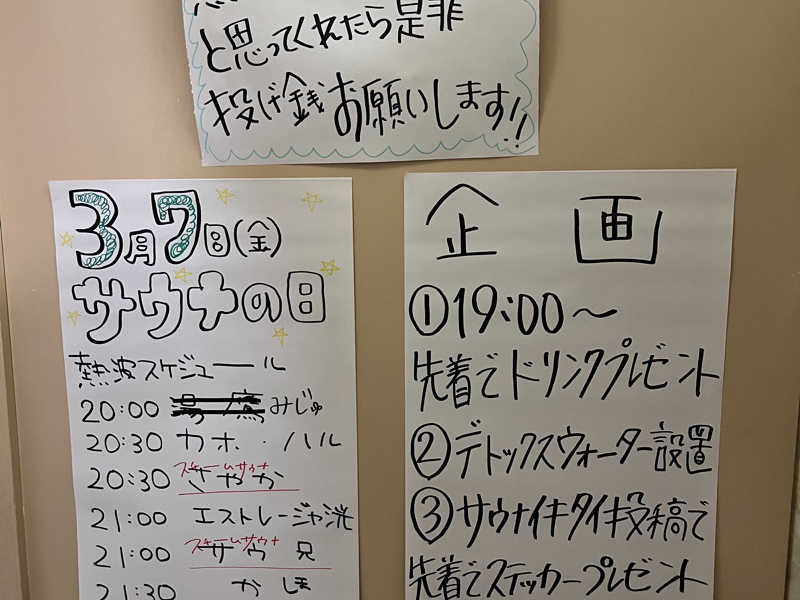 と思ってくれたら是非
投げ銭お願いします!!
3月7日(金)
サウナの日
熱波スケジュール
20:00 みじゅ
20:30 カホ・ハル
スチームサウナ
20:30 さやか
21:00 エストレージャ洸
スチームサウナ
21:00 サウ兄
21:30 かしま
企画
①19:00〜
先着でドリンクプレゼント
②デトックスウォーター設置
③サウナイキタイ投稿で
先着でステッカープレゼント